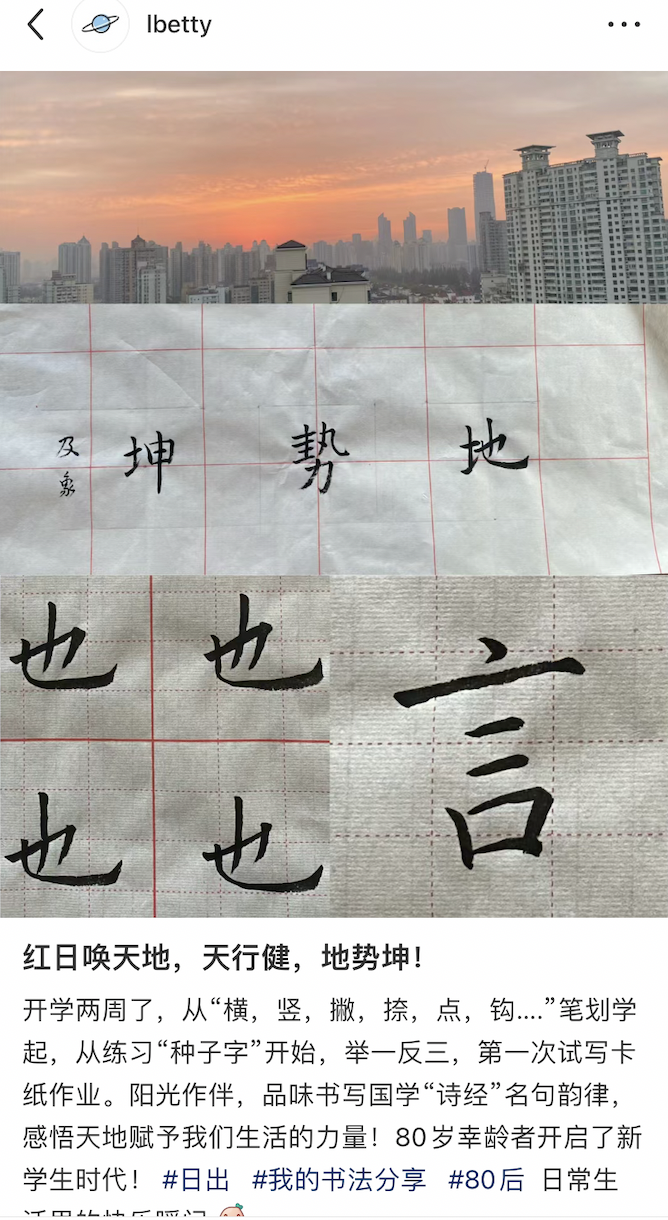 lbetty
地勢坤
及象
也 也
也 也
言
红日唤天地，天行健，地势坤！
开学两周了，从“横，竖，撇，捺，点，钩....”笔划学
起，从练习“种子字”开始，举一反三，第一次试写卡
纸作业。阳光作伴，品味书写国学“诗经”名句韵律，
感悟天地赋予我们生活的力量！80岁幸龄者开启了新
学生时代！ #日出 #我的书法分享 #80后 日常生
活里的快乐瞬间